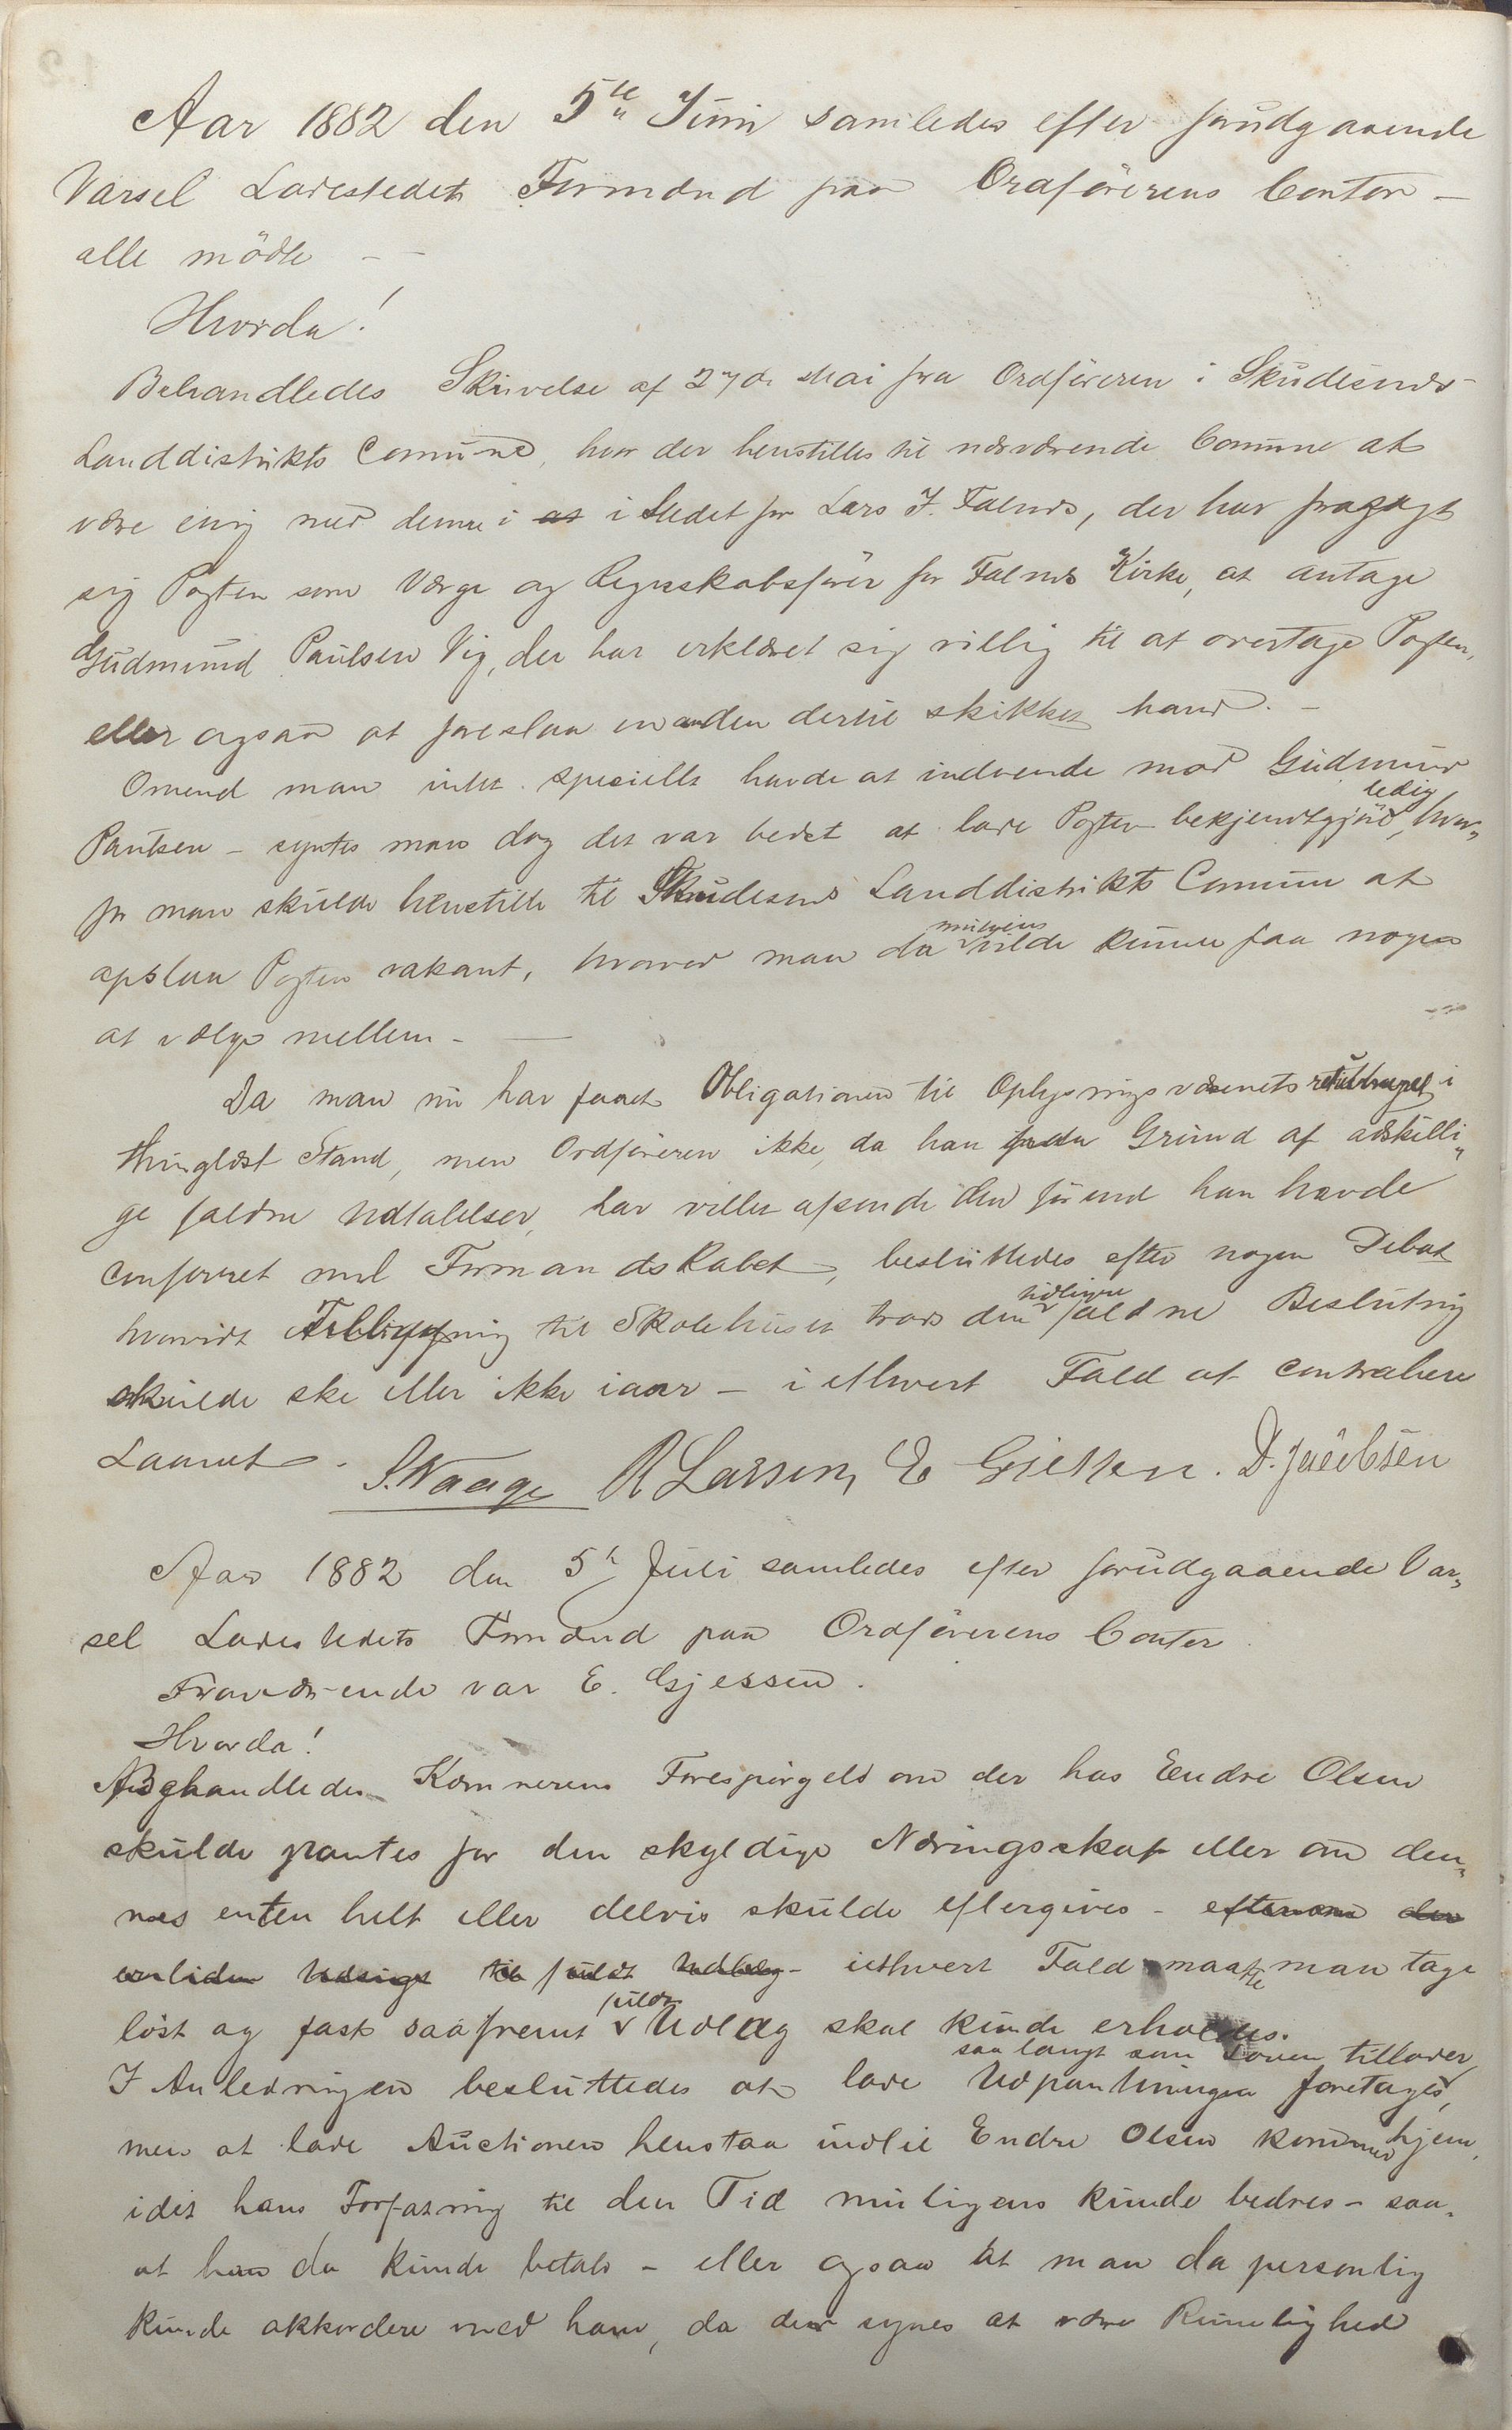 Aar 1882 den 5te Juni samledes efter forudgaaende
Varsel Ladestedets Formænd paa Ordförerens Contor –
alle mödte – –
Hvorda!
Behandledes Skrivelse af 27de Mai fra Ordföreren i Skudesnæs
Landdistrikts Comune, hvor der henstilles til nærværende Comune at
være enig med denne i at i Stedet for Lars J. Falnæs, der har fragagt
sig Posten som Værge og Regnskabsförer for Falnæs Kirke, at antage
Gudmund Paulsen Vig, der har erklæret sig villig til at overtage Posten,
eller ogsaa at foreslaa en anden dertil skikket hand. –
Omend man intet specielt havde at indvende mod Gudmund
Paulsen – syntes man dog det var bedst at lade Posten bekjendtgjöre ledig, hvor„
for man skulde henstille til Skudesnæs Landdistrikts Comune at
opslaa Posten vakant, hvorved man da muligens vilde kunne faa nogen
at vælge mellem – —
Da man nu har faaet Obligationen til Oplysningsvæsenets i
thinglæst Stand, men Ordföreren ikke, da han paa Grund af adskilli„
ge faldne Udtalelser, har villet afsende den förend han havde
confereret med Formandskabet, besluttedes efter nogen Debat
hvorvidt Tilbygning til Skolehuset trods den tidligere faldne Beslutning
skulde ske eller ikke iaar – i ethvert Fald at contrahere
Laanet.
S. Waage R Larsen, E Gjessen. D. Jacobsen
Aar 1882 den 5te Juli samledes efter forudgaaende Var„
sel Ladestedets Formænd paa Ordförerens Contor.
Fraværende var E. Gjessen.
Hvorda!
Beghandledes Kæmnerens Forespörgsel om der hos Endre Olsen
skulde pantes for den skyldige Næringsskat eller om den„
nes enten helt eller delvis skulde eftergives – eftersom der
var liden Udsigt til fuldt Udlæg – iethvert Fald maatte man tage
löst og fast saafremt fuldt Udlæg skal kunde erholdes.
I Anledningen besluttedes at lade Udpantningen foretages, saa langt som Loven tillader,
men at lade Auctionen henstaa indtil Endre Olsen kommer hjem,
idet hans Forfatning til den Tid muligens kunde bedres – saa„
at han da kunde betale – eller ogsaa at man da personlig
kunde akkordere med ham, da der synes at være Rimelighed